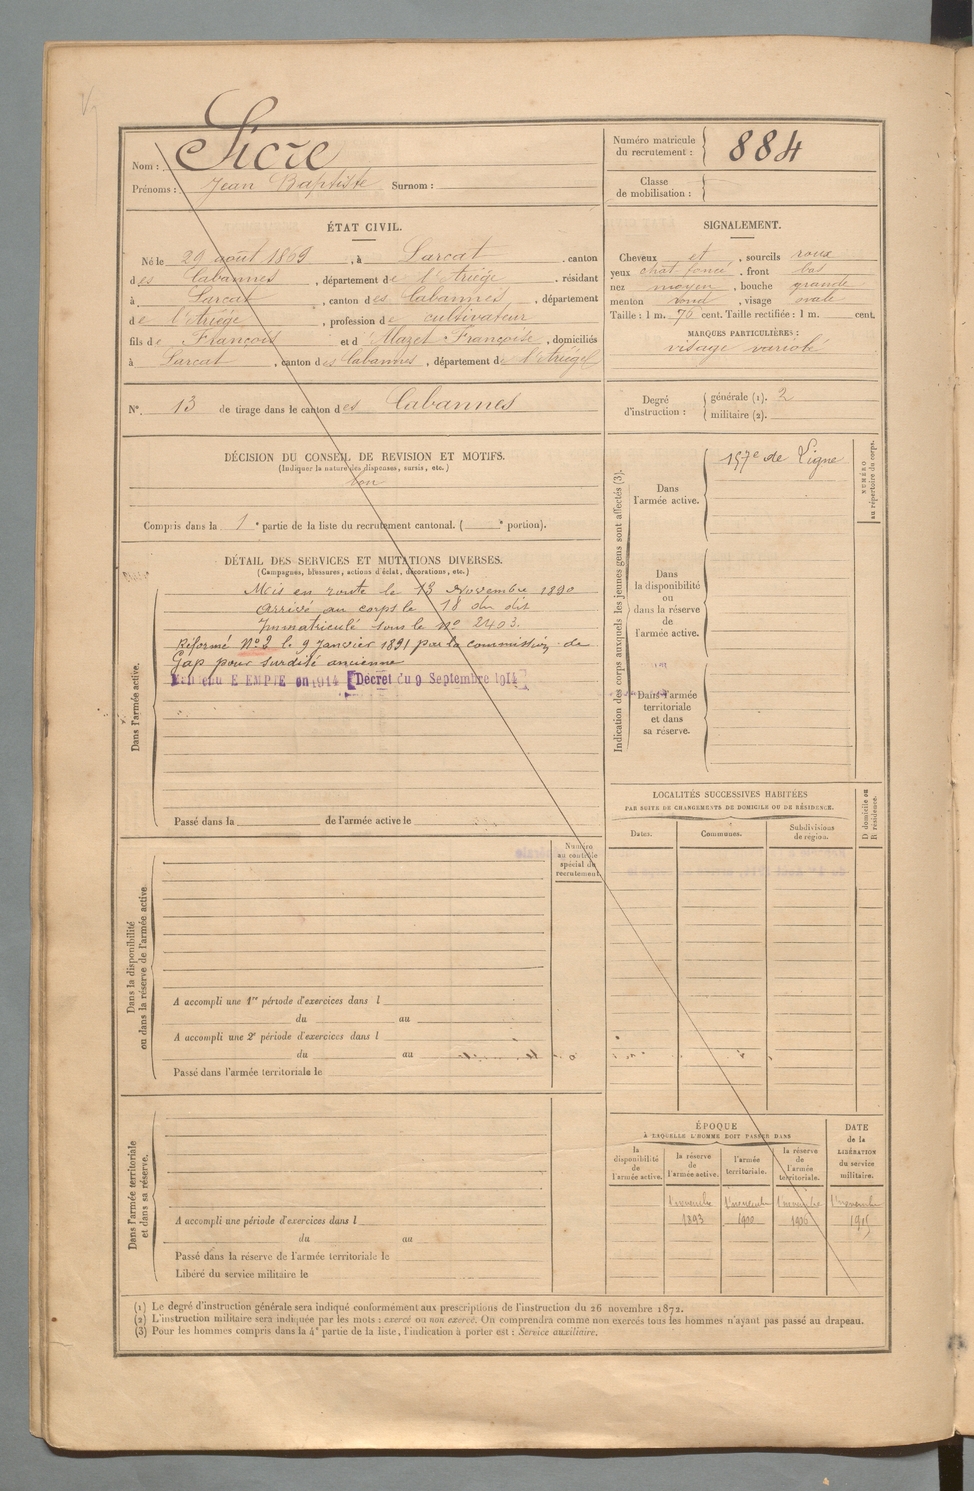 Nom : Sicre
Prénoms : Jean Baptiste Surnom :
Numéro matricule du recrutement : 884
Classe de mobilisation :
ÉTAT CIVIL.
Né le 29 août 1869, à Larcat, canton
des Cabannes, département de l'Ariège, résidant
à Larcat, canton des Cabannes, département
de l'Ariège, profession de cultivateur
fils de François et d Mazet Françoise, domiciliés
à Larcat, canton des Cabannes, département de l'Ariège
N° 13 de tirage dans le canton des Cabannes
SIGNALEMENT.
Cheveux et, sourcils roux
yeux chat foncé, front bas
nez moyen, bouche grande
menton rond, visage ovale
Taille : 1 m. 76 cent. Taille rectifiée : 1 m. cent.
MARQUES PARTICULIÈRES :
visage variolé
Degré d'instruction : générale (1). 2
militaire (2).
DÉCISION DU CONSEIL DE REVISION ET MOTIFS.
(Indiquer la nature des dispenses, sursis, etc.)
bon
Compris dans la 1e partie de la liste du recrutement cantonal. ( e portion).
DÉTAIL DES SERVICES ET MUTATIONS DIVERSES.
(Campagnes, blessures, actions d'éclat, décorations, etc.)
Dans l'armée active.
Mis en route le 13 Novembre 1890
Arrivé au corps le 18 du dit
Immatriculé sous le n° 2403.
Réformé N° 2 le 9 Janvier 1891 par la commission de
Gap pour surdité ancienne
EMPTE en 1914 [Décret du 9 Septembre 1914]
Passé dans la de l'armée active le
Indication des corps auxquels les jeunes gens sont affectés (3).
Dans l'armée active.
157e de Ligne
Dans la disponibilité ou dans la réserve de l'armée active.
Dans l'armée territoriale et dans sa réserve.
NUMÉRO au répertoire du corps.
LOCALITÉS SUCCESSIVES HABITÉES
PAR SUITE DE CHANGEMENTS DE DOMICILE OU DE RÉSIDENCE.
Dates. Communes. Subdivisions de région. D domicile ou R résidence.
Numéro au contrôle spécial du recrutement
Dans la disponibilité ou dans la réserve de l'armée active.
A accompli une 1re période d'exercices dans l
du au
A accompli une 2e période d'exercices dans l
du au
Passé dans l'armée territoriale le
Dans l'armée territoriale et dans sa réserve.
A accompli une période d'exercices dans l
du au
Passé dans la réserve de l'armée territoriale le
Libéré du service militaire le
ÉPOQUE
À LAQUELLE L'HOMME DOIT PASSER DANS
la disponibilité de l'armée active.
la réserve de l'armée active.
l'armée territoriale.
la réserve de l'armée territoriale.
DATE de la LIBÉRATION du service militaire.
1 novembre 1 novembre 1 novembre 1 novembre
1893 1900 1906 1915
(1) Le degré d'instruction générale sera indiqué conformément aux prescriptions de l'instruction du 26 novembre 1872.
(2) L'instruction militaire sera indiquée par les mots : exercé ou non exercé. On comprendra comme non exercés tous les hommes n'ayant pas passé au drapeau.
(3) Pour les hommes compris dans la 4e partie de la liste, l'indication à porter est : Service auxiliaire.